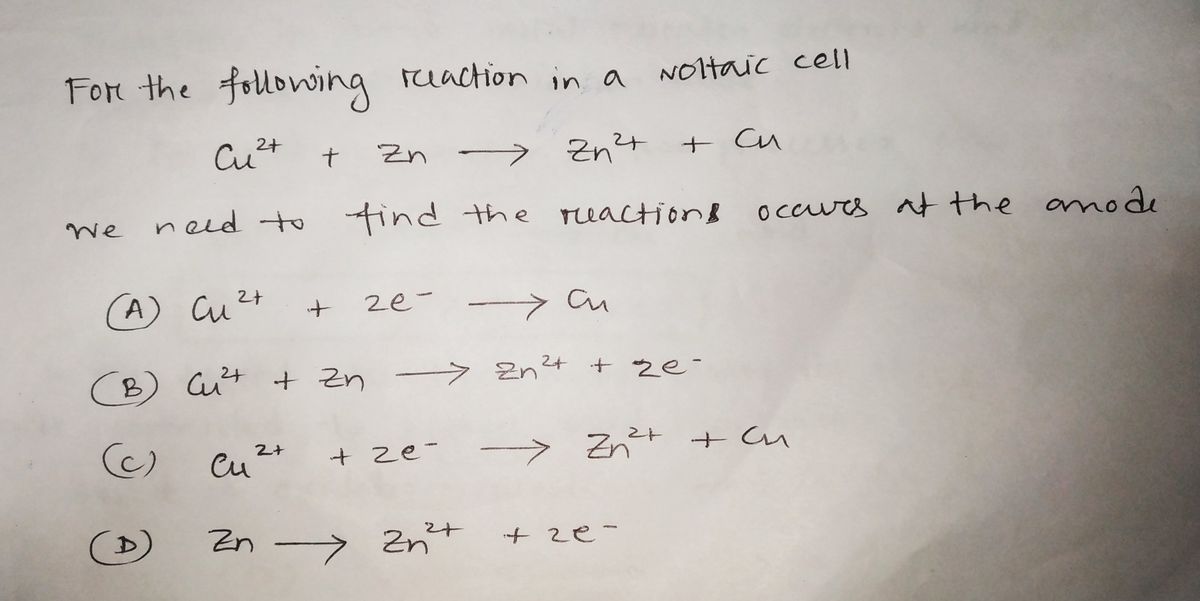 For the following reaction in a voltaic cell
Cu²⁺ + Zn → Zn²⁺ + Cu
we need to find the reactions occurs at the anode
(A) Cu²⁺ + 2e⁻ → Cu
(B) Cu²⁺ + Zn → Zn²⁺ + 2e⁻
(C) Cu²⁺ + 2e⁻ → Zn²⁺ + Cu
(D) Zn → Zn²⁺ + 2e⁻